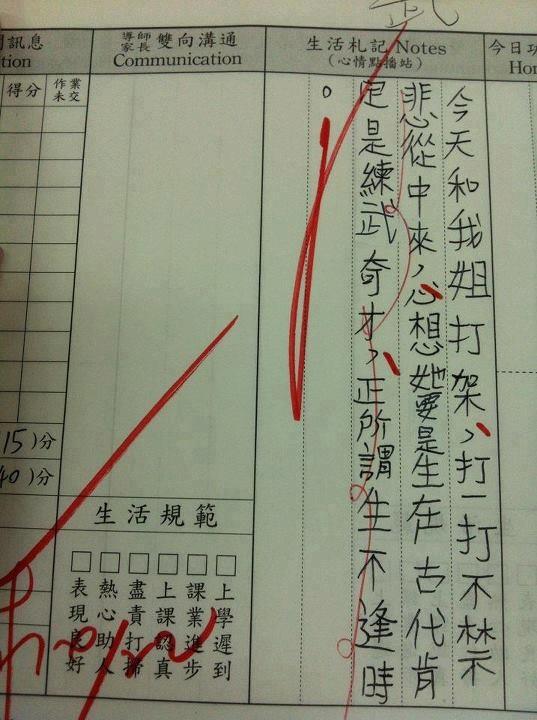 武
訊息
tion
得分
作業未交
15)分
40)分
導師家長 雙向溝通
Communication
生活札記 Notes
(心情點播站)
今日功
Hor
今天和我姐打架,打一打不禁
悲從中來,心想她要是生在古代肯
定是練武奇才,正所謂生不逢時
。
生活規範
□上學遲到
□課業進步
□上課認真
□盡責打掃
□熱心助人
□表現良好